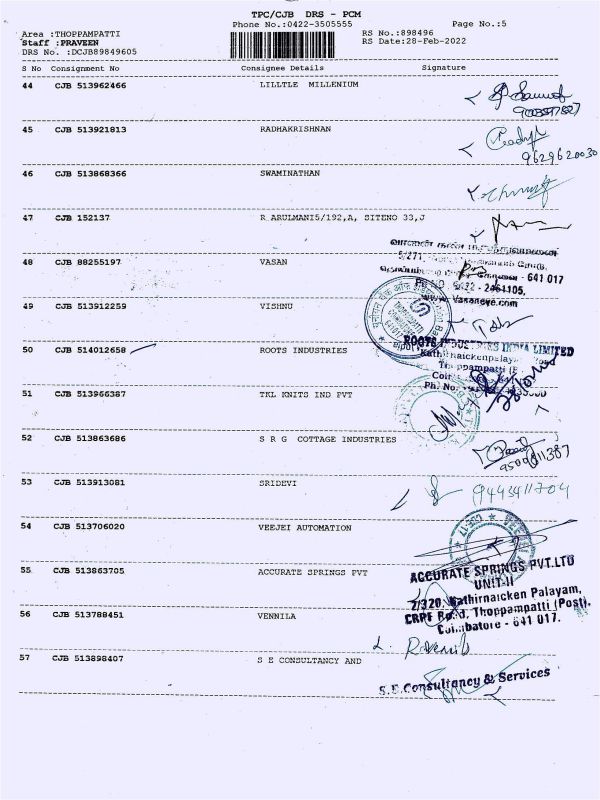 TPC/CJB DRS - PCM
Phone No.:0422-3505555
Page No.:5
Area :THOPPAMPATTI
Staff :PRAVEEN
DRS No. :DCJB89849605
RS No.:898496
RS Date:28-Feb-2022
S No Consignment No Consignee Details Signature
44 CJB 513962466 LILLTLE MILLENIUM
45 CJB 513921813 RADHAKRISHNAN
9629620030
46 CJB 513868366 SWAMINATHAN
47 CJB 152137 R.ARULMANI5/192,A, SITENO 33,J
5/271,
- 641 017
48 CJB 88255197 VASAN
2461105,
www.vasaneye.com
49 CJB 513912259 VISHNU
ROOTS INDUSTRIES INDIA LIMITED
50 CJB 514012658 ROOTS INDUSTRIES
Kathirnaickenpalayam
Thoppampatti
Ph. No.
51 CJB 513966387 TKL KNITS IND PVT
52 CJB 513863686 S R G COTTAGE INDUSTRIES
9509811387
53 CJB 513913081 SRIDEVI
9443411704
54 CJB 513706020 VEEJEI AUTOMATION
55 CJB 513863705 ACCURATE SPRINGS PVT
ACCURATE SPRINGS PVT.LTD
UNIT-II
2/320, Kathirnaicken Palayam,
CRPF Road, Thoppampatti (Post),
Coimbatore - 641 017.
56 CJB 513788451 VENNILA
57 CJB 513898407 S E CONSULTANCY AND
S.E.Consultancy & Services